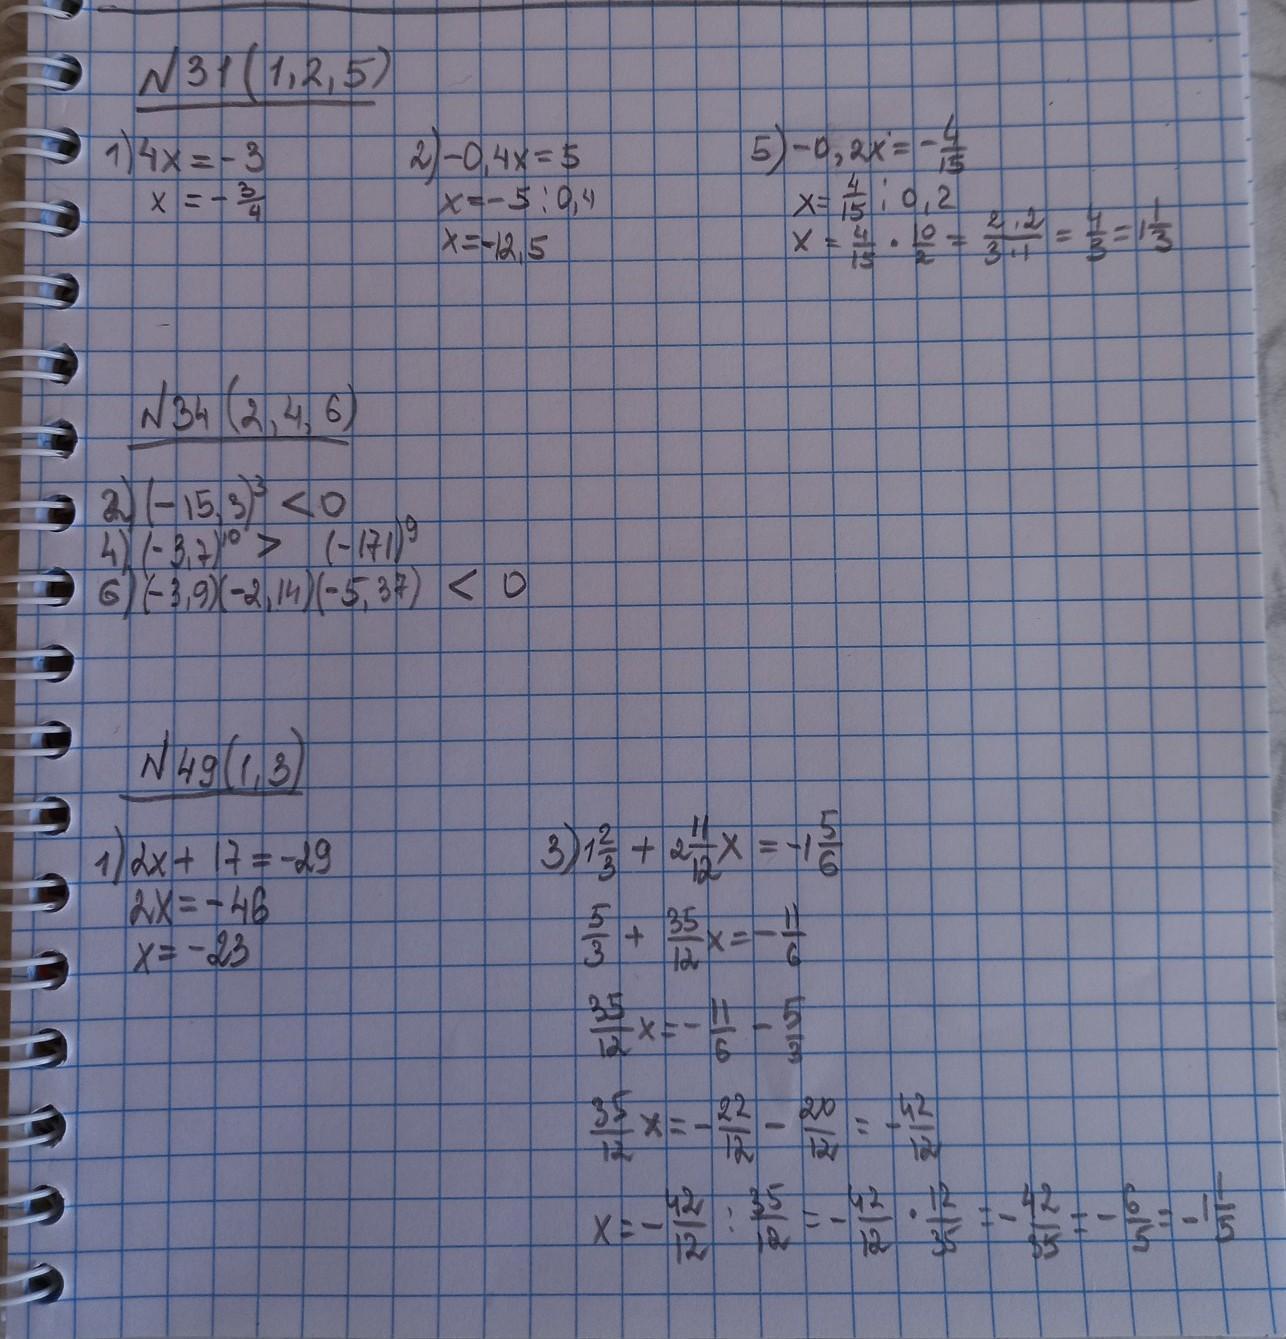 N31(1,2,5)
1) 4x = -3
x = -3/4
2) -0,4x = 5
x = -5 : 0,4
x = -12,5
5) -0,2x = -4/15
x = 4/15 : 0,2
x = 4/15 · 10/2 = 2·2/3·1 = 4/3 = 1 1/3
N34(2,4,6)
2) (-15,3)³ < 0
4) (-3,7)¹⁰ > (-171)⁹
6) (-3,9)(-2,14)(-5,37) < 0
N49(1,3)
1) 2x + 17 = -29
2x = -46
x = -23
3) 1 2/3 + 2 11/12 x = -1 5/6
5/3 + 35/12 x = -11/6
35/12 x = -11/6 - 5/3
35/12 x = -22/12 - 20/12 = -42/12
x = -42/12 : 35/12 = -42/12 · 12/35 = -42/35 = -6/5 = -1 1/5